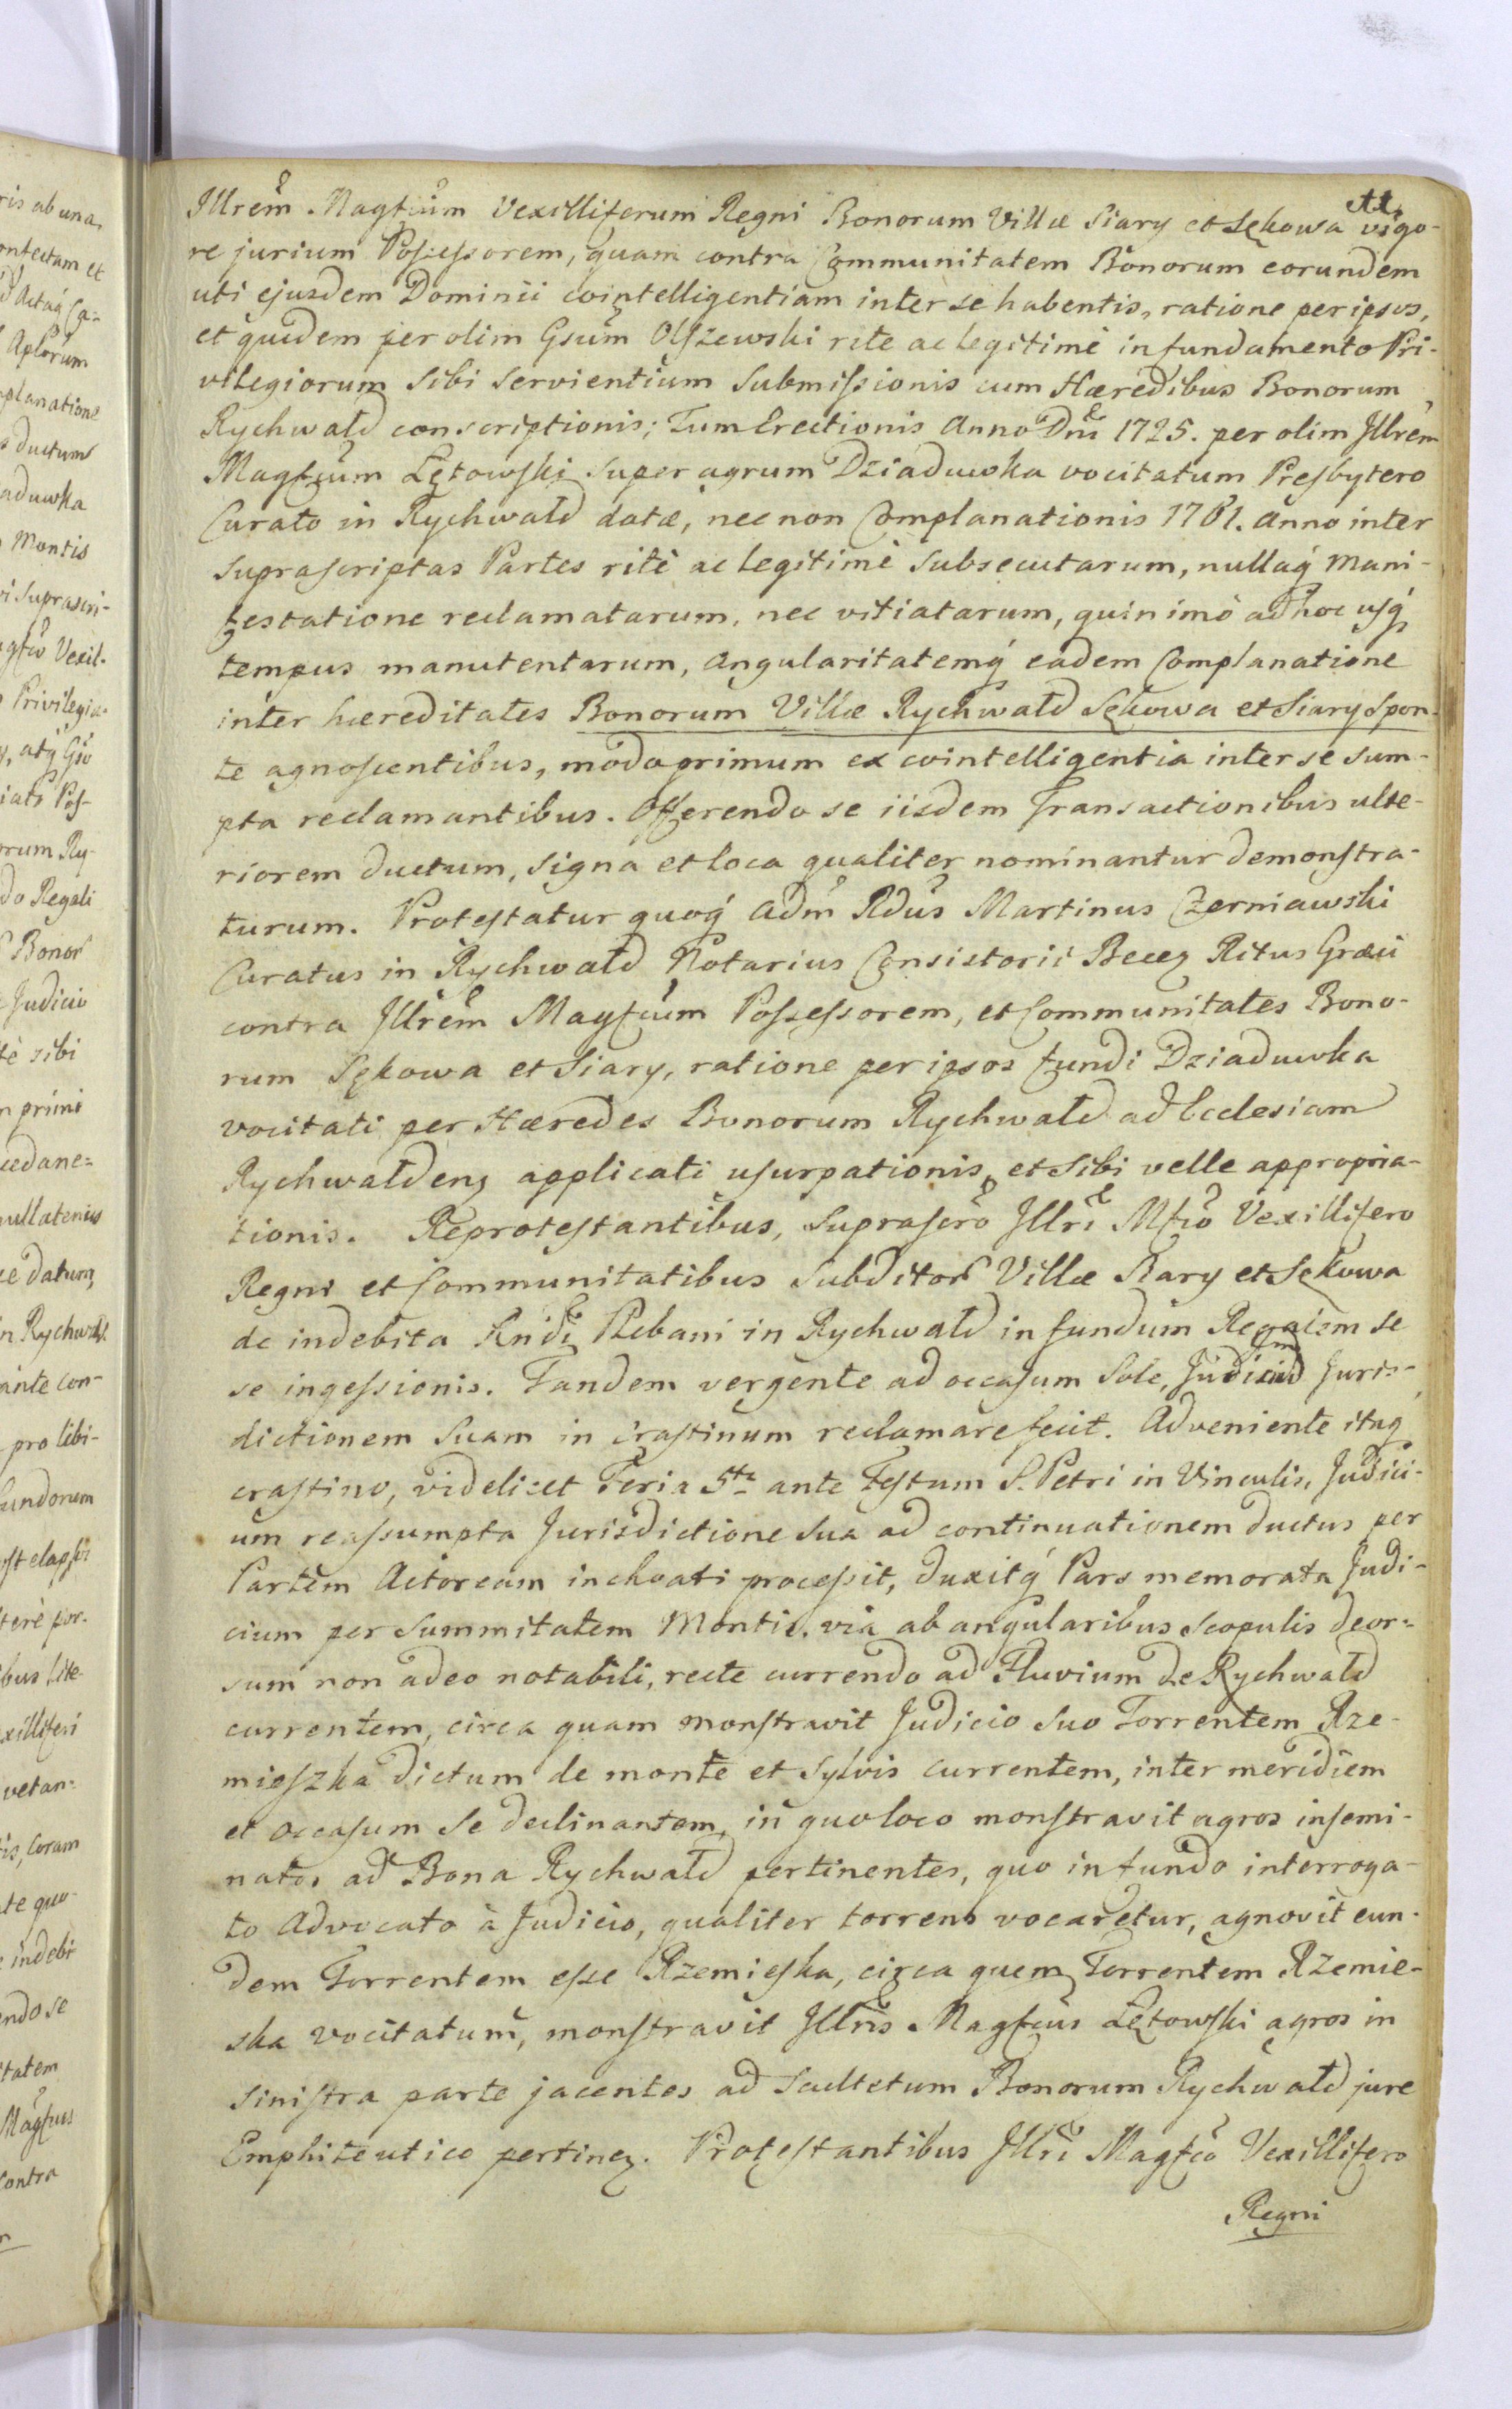 Illrem̃ Magfcum̃ Vexilliferum Regni Bonorum Villæ Siary et Sękowa vigo-
re jurium Possessorem, quam contra Communitatem Bonorum eorundem
uti ejusdem Dominii cointelligentiam inter se habentis, ratione per ipsos,
et quidem per olim Gsum̃ Olszewski rite ac legitimè in fundamento Pri-
vilegiorum sibi servientium submissionis cum Hæredibus Bonorum
Rychwałd conscriptionis; Tum Erectionis Anno Dni 1725. per olim Illrem̃
Magfcum Łętowski super agrum Dziaduwka vocitatum Presbytero
Curato in Rychwałd datæ, nec non Complanationis 1761. Anno inter
suprascriptas Partes ritè ac legitimè subsecutarum, nullaq́ mani-
festatione reclamatarum, nec vitiatarum, quin imò adhoc usq́
tempus manutentarum, angularitatemq́ eadem Complanatione
inter hæreditates Bonorum Villæ Rychwałd Sękowa et Siary spon-
te agnoscentibus, modo primum ex cointelligentia inter se sum-
pta reclamantibus. Offerendo se iisdem Transactionibus ulte-
riorem ductum, signa et loca qualiter nominantur demonstra-
turum. Protestatur quoq́ Adm̃ Rdus̃ Martinus Czerniawski
Curatus in Rychwałd Notarius Consistorii Becez Ritus Græci
contra Illrem̃ Magfcum̃ Possessorem, et Communitates Bono-
rum Sękowa et Siary, ratione per ipsos fundi Dziaduwka
vocitati per Hæredes Bonorum Rychwałd ad Ecclesiam
Rychwałdenz applicati usurpationis, et sibi velle appropria-
tionis. Reprotestantibus, suprascrõ Illri Mfcõ Vexillifero
Regni et Communitatibus subditor Villæ Siary et Sękowa
de indebita Rndi Plebani in Rychwałd in fundum Regalem se
se ingessionis. Tandem vergente ad occasum Sole, Juris-
dictionem suam in crastinum reclamare fecit. Adveniente itaq
crastino, videlicet Feria 5ta ante Festum S. Petri in Vinculis, Judici-
um reassumpta Jurisdictione sua ad continuationem ductus per
Partem Actoream inchoati processit, duxitq́ Pars memorata Judi-
cium per summitatem Montis, via ab angularibus scopulis deor-
sum non adeo notabili, recte currendo ad Fluvium de Rychwałd
currentem, circa quam monstravit Judicio suo Torrentem Rze-
mieszka dictum de monte et sylvis currentem, inter meridiem
et occasum se declinantem, in quo loco monstravit agros insemi-
natos ad Bona Rychwałd pertinentes, quo in fundo interroga-
to Advocato à Judicio, qualiter torrens vocaretur, agnovit eun-
dem Torrentem esse Rzemieska, circa quem Torrentem Rzemie-
ska vocitatum, monstravit Illris̃ Magfcus Łętowski agros in
sinistra parte jacentes ad Scultetum Bonorum Rychwałd jure
Emphiteutico pertinez. Protestantibus Illri Magfcõ Vexillifero
Regni